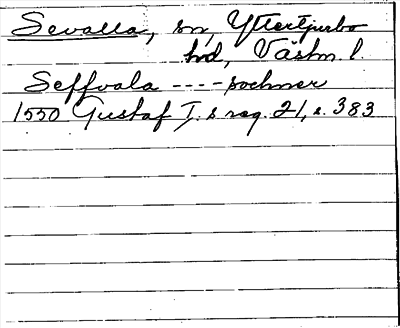 Sevalla, sn, Yttertjurbo
hd, Västm. l.
Seffvala ---- sochner
1550 Gustaf I:s reg. 21, s. 383